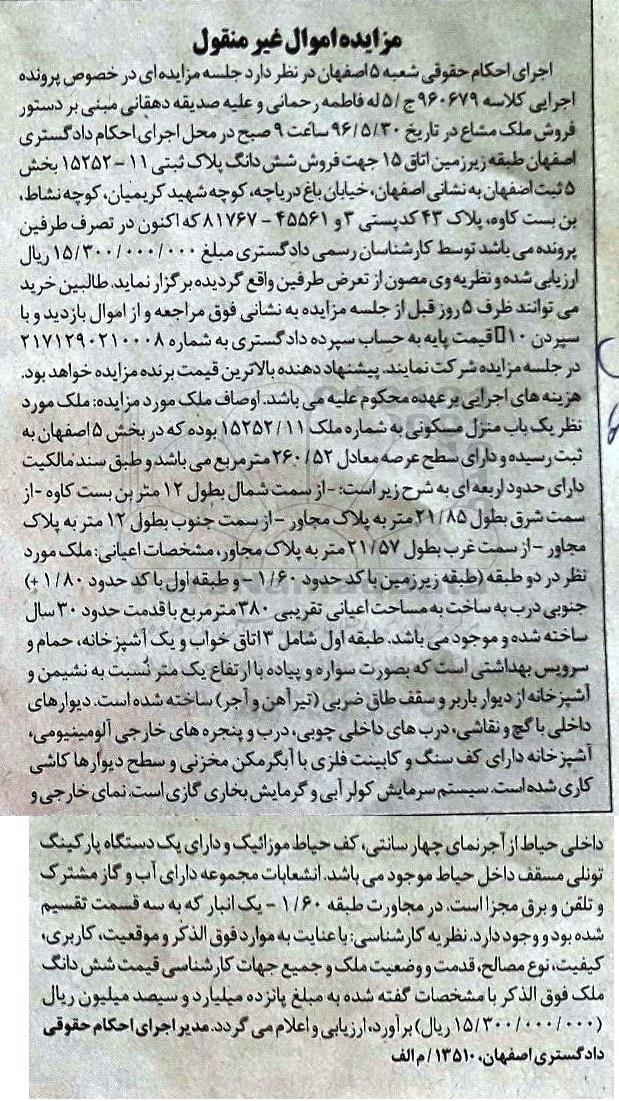 مزایده اموال غیر منقول
اجرای احکام حقوقی شعبه ۵ اصفهان در نظر دارد جلسه مزایده ای در خصوص پرونده
اجرایی کلاسه ۹۶۰۶۷۹ ج/۵ له فاطمه رحمانی و علیه صدیقه دهقانی مبنی بر دستور
فروش ملک مشاع در تاریخ ۹۶/۵/۳۰ ساعت ۹ صبح در محل اجرای احکام دادگستری
اصفهان طبقه زیرزمین اتاق ۱۵ جهت فروش شش دانگ پلاک ثبتی ۱۱ – ۱۵۲۵۲ بخش
۵ ثبت اصفهان به نشانی اصفهان، خیابان باغ دریاچه، کوچه شهید کریمیان، کوچه نشاط،
بن بست کاوه، پلاک ۴۳ کدپستی ۳ و ۴۵۵۶۱ – ۸۱۷۶۷ که اکنون در تصرف طرفین
پرونده می باشد توسط کارشناسان رسمی دادگستری مبلغ ۱۵/۳۰۰/۰۰۰/۰۰۰ ریال
ارزیابی شده و نظریه وی مصون از تعرض طرفین واقع گردیده برگزار نماید. طالبین خرید
می توانند ظرف ۵ روز قبل از جلسه مزایده به نشانی فوق مراجعه و از اموال بازدید و با
سپردن ۱۰ قیمت پایه به حساب سپرده دادگستری به شماره ۲۱۷۱۲۹۰۲۱۰۰۰۸
در جلسه مزایده شرکت نمایند. پیشنهاد دهنده بالاترین قیمت برنده مزایده خواهد بود.
هزینه های اجرایی بر عهده محکوم علیه می باشد. اوصاف ملک مورد مزایده: ملک مورد
نظر یک باب منزل مسکونی به شماره ملک ۱۵۲۵۲/۱۱ بوده که در بخش ۵ اصفهان به
ثبت رسیده و دارای سطح عرصه معادل ۲۶۰/۵۲ مترمربع می باشد و طبق سند مالکیت
دارای حدود اربعه ای به شرح زیر است: –از سمت شمال بطول ۱۲ متر بن بست کاوه –از
سمت شرق بطول ۲۱/۸۵ متر به پلاک مجاور –از سمت جنوب بطول ۱۲ متر به پلاک
مجاور –از سمت غرب بطول ۲۱/۵۷ متر به پلاک مجاور، مشخصات اعیانی: ملک مورد
نظر در دو طبقه (طبقه زیرزمین با کد حدود ۱/۶۰ – و طبقه اول با کد حدود ۱/۸۰ +)
جنوبی درب به ساخت به مساحت اعیانی تقریبی ۳۸۰ مترمربع با قدمت حدود ۳۰ سال
ساخته شده و موجود می باشد. طبقه اول شامل ۳ اتاق خواب و یک آشپزخانه، حمام و
سرویس بهداشتی است که بصورت سواره و پیاده با ارتفاع یک متر نسبت به نشیمن و
آشپزخانه از دیوار باربر و سقف طاق ضربی (تیرآهن و آجر) ساخته شده است. دیوارهای
داخلی با گچ و نقاشی، درب های داخلی چوبی، درب و پنجره های خارجی آلومینیومی،
آشپزخانه دارای کف سنگ و کابینت فلزی با آبگرمکن مخزنی و سطح دیوارها کاشی
کاری شده است. سیستم سرمایش کولر آبی و گرمایش بخاری گازی است. نمای خارجی و
داخلی حیاط از آجرنمای چهار سانتی، کف حیاط موزائیک و دارای یک دستگاه پارکینگ
تونلی مسقف داخل حیاط موجود می باشد. انشعابات مجموعه دارای آب و گاز مشترک
و تلفن و برق مجزا است. در مجاورت طبقه ۱/۶۰ – یک انبار که به سه قسمت تقسیم
شده بود و وجود دارد. نظریه کارشناسی: با عنایت به موارد فوق الذکر و موقعیت، کاربری،
کیفیت، نوع مصالح، قدمت و وضعیت ملک و جمیع جهات کارشناسی قیمت شش دانگ
ملک فوق الذکر با مشخصات گفته شده به مبلغ پانزده میلیارد و سیصد میلیون ریال
(۱۵/۳۰۰/۰۰۰/۰۰۰ ریال) برآورد، ارزیابی و اعلام می گردد. مدیر اجرای احکام حقوقی
دادگستری اصفهان، ۱۳۵۱۰/م الف